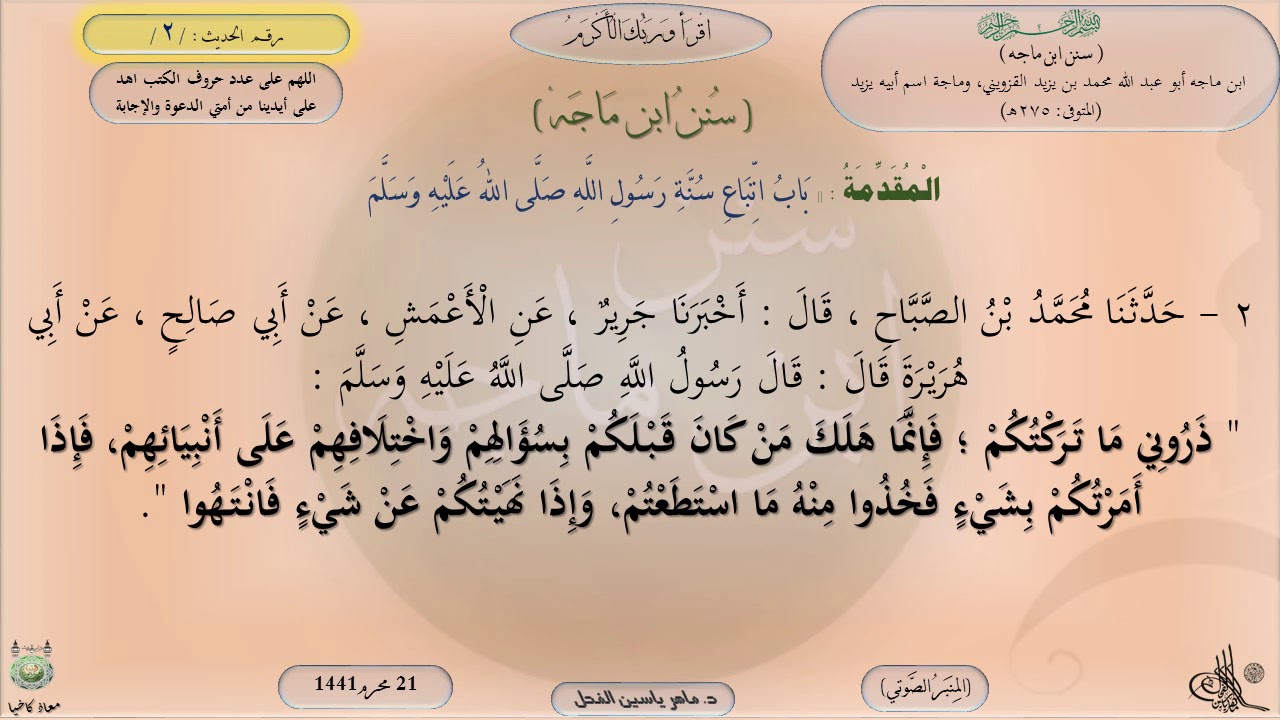 بسم الله الرحمن الرحيم
( سنن ابن ماجه )
ابن ماجه أبو عبد الله محمد بن يزيد القزويني، وماجة اسم أبيه يزيد
(المتوفى: ٢٧٥هـ)
اقْرَأْ وَرَبُّكَ الْأَكْرَمُ
رقم الحديث : / ٢ /
اللهم على عدد حروف الكتب اهد
على أيدينا من أمتي الدعوة والإجابة
(سُنَن ابن مَاجَه)
الْمُقَدِّمَةُ : || بَابُ اتِّبَاعِ سُنَّةِ رَسُولِ اللَّهِ صَلَّى اللهُ عَلَيْهِ وَسَلَّمَ
سنن
ابن ماجه
٢ – حَدَّثَنَا مُحَمَّدُ بْنُ الصَّبَّاحِ ، قَالَ : أَخْبَرَنَا جَرِيرٌ ، عَنِ الْأَعْمَشِ ، عَنْ أَبِي صَالِحٍ ، عَنْ أَبِي
هُرَيْرَةَ قَالَ : قَالَ رَسُولُ اللَّهِ صَلَّى اللَّهُ عَلَيْهِ وَسَلَّمَ :
" ذَرُونِي مَا تَرَكْتُكُمْ ؛ فَإِنَّمَا هَلَكَ مَنْ كَانَ قَبْلَكُمْ بِسُؤَالِهِمْ وَاخْتِلَافِهِمْ عَلَى أَنْبِيَائِهِمْ، فَإِذَا
أَمَرْتُكُمْ بِشَيْءٍ فَخُذُوا مِنْهُ مَا اسْتَطَعْتُمْ، وَإِذَا نَهَيْتُكُمْ عَنْ شَيْءٍ فَانْتَهُوا ".
(المِنبَرُ الصَّوتي)
د. ماهر ياسين الفحل
21 محرم 1441
معاذ كاضيا